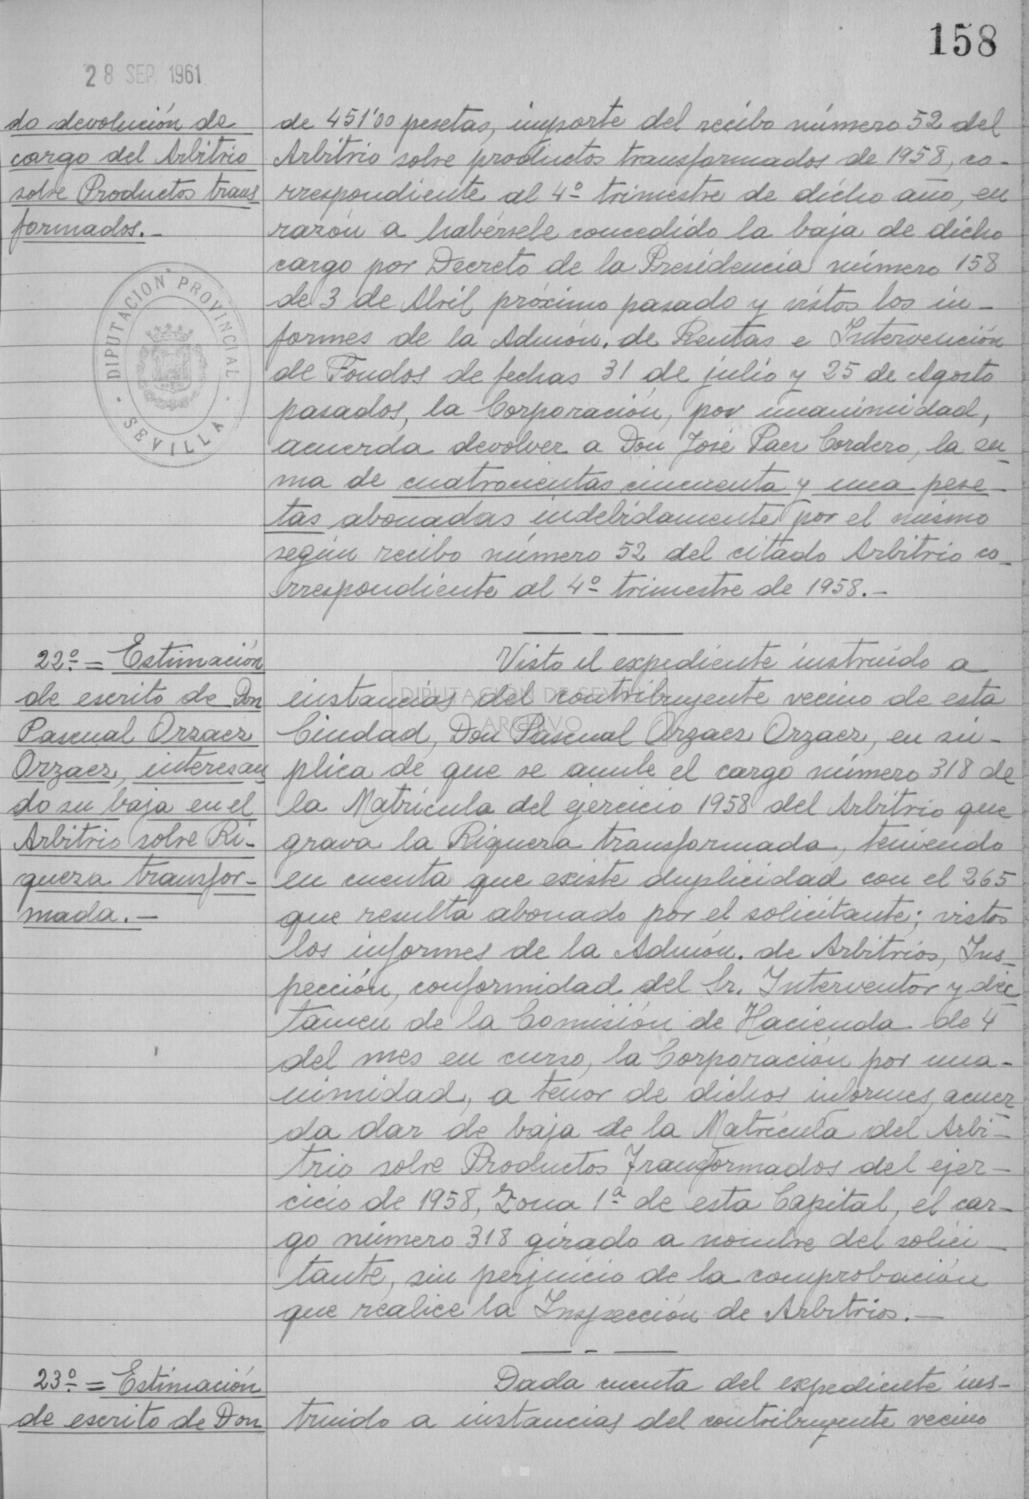 158
28 SEP. 1961
do devolución de
cargo del Arbitrio
sobre Productos trans
formados.-
de 451'00 pesetas, importe del recibo número 52 del
Arbitrio sobre productos transformados de 1958, co-
rrespondiente al 4º trimestre de dicho año, en
razón a habérsele concedido la baja de dicho
cargo por Decreto de la Presidencia número 158
de 3 de Abril próximo pasado y vistos los in-
formes de la Admón. de Rentas e Intervención
de Fondos de fechas 31 de julio y 25 de Agosto
pasados, la Corporación, por unanimidad,
acuerda devolver a Don José Paez Cordero, la su
ma de cuatrocientas cincuenta y una pese-
tas abonadas indebidamente por el mismo
según recibo número 52 del citado Arbitrio co-
rrespondiente al 4º trimestre de 1958.-
DIPUTACION PROVINCIAL
SEVILLA
22º= Estimación
de escrito de Don
Pascual Orzaez
Orzaez, interesan
do su baja en el
Arbitrio sobre Ri-
queza transfor-
mada.-
Visto el expediente instruído a
instancias del contribuyente vecino de esta
Ciudad, Don Pascual Orzaez Orzaez, en sú-
plica de que se anule el cargo número 318 de
la Matrícula del ejercicio 1958 del Arbitrio que
grava la Riqueza transformada, teniendo
en cuenta que existe duplicidad con el 265
que resulta abonado por el solicitante; vistos
los informes de la Admón. de Arbitrios, Ins-
pección, conformidad del Sr. Interventor y dic
tamen de la Comisión de Hacienda de 4
del mes en curso, la Corporación por una-
nimidad, a tenor de dichos informes, acuer
da dar de baja de la Matrícula del Arbi-
trio sobre Productos Transformados del ejer-
cicio de 1958, Zona 1ª de esta Capital, el car-
go número 318 girado a nombre del solici-
tante, sin perjuicio de la comprobación
que realice la Inspección de Arbitrios.-
DIPUTACION DE SEVILLA
ARCHIVO
23º= Estimación
de escrito de Don
Dada cuenta del expediente ins-
truido a instancias del contribuyente vecino